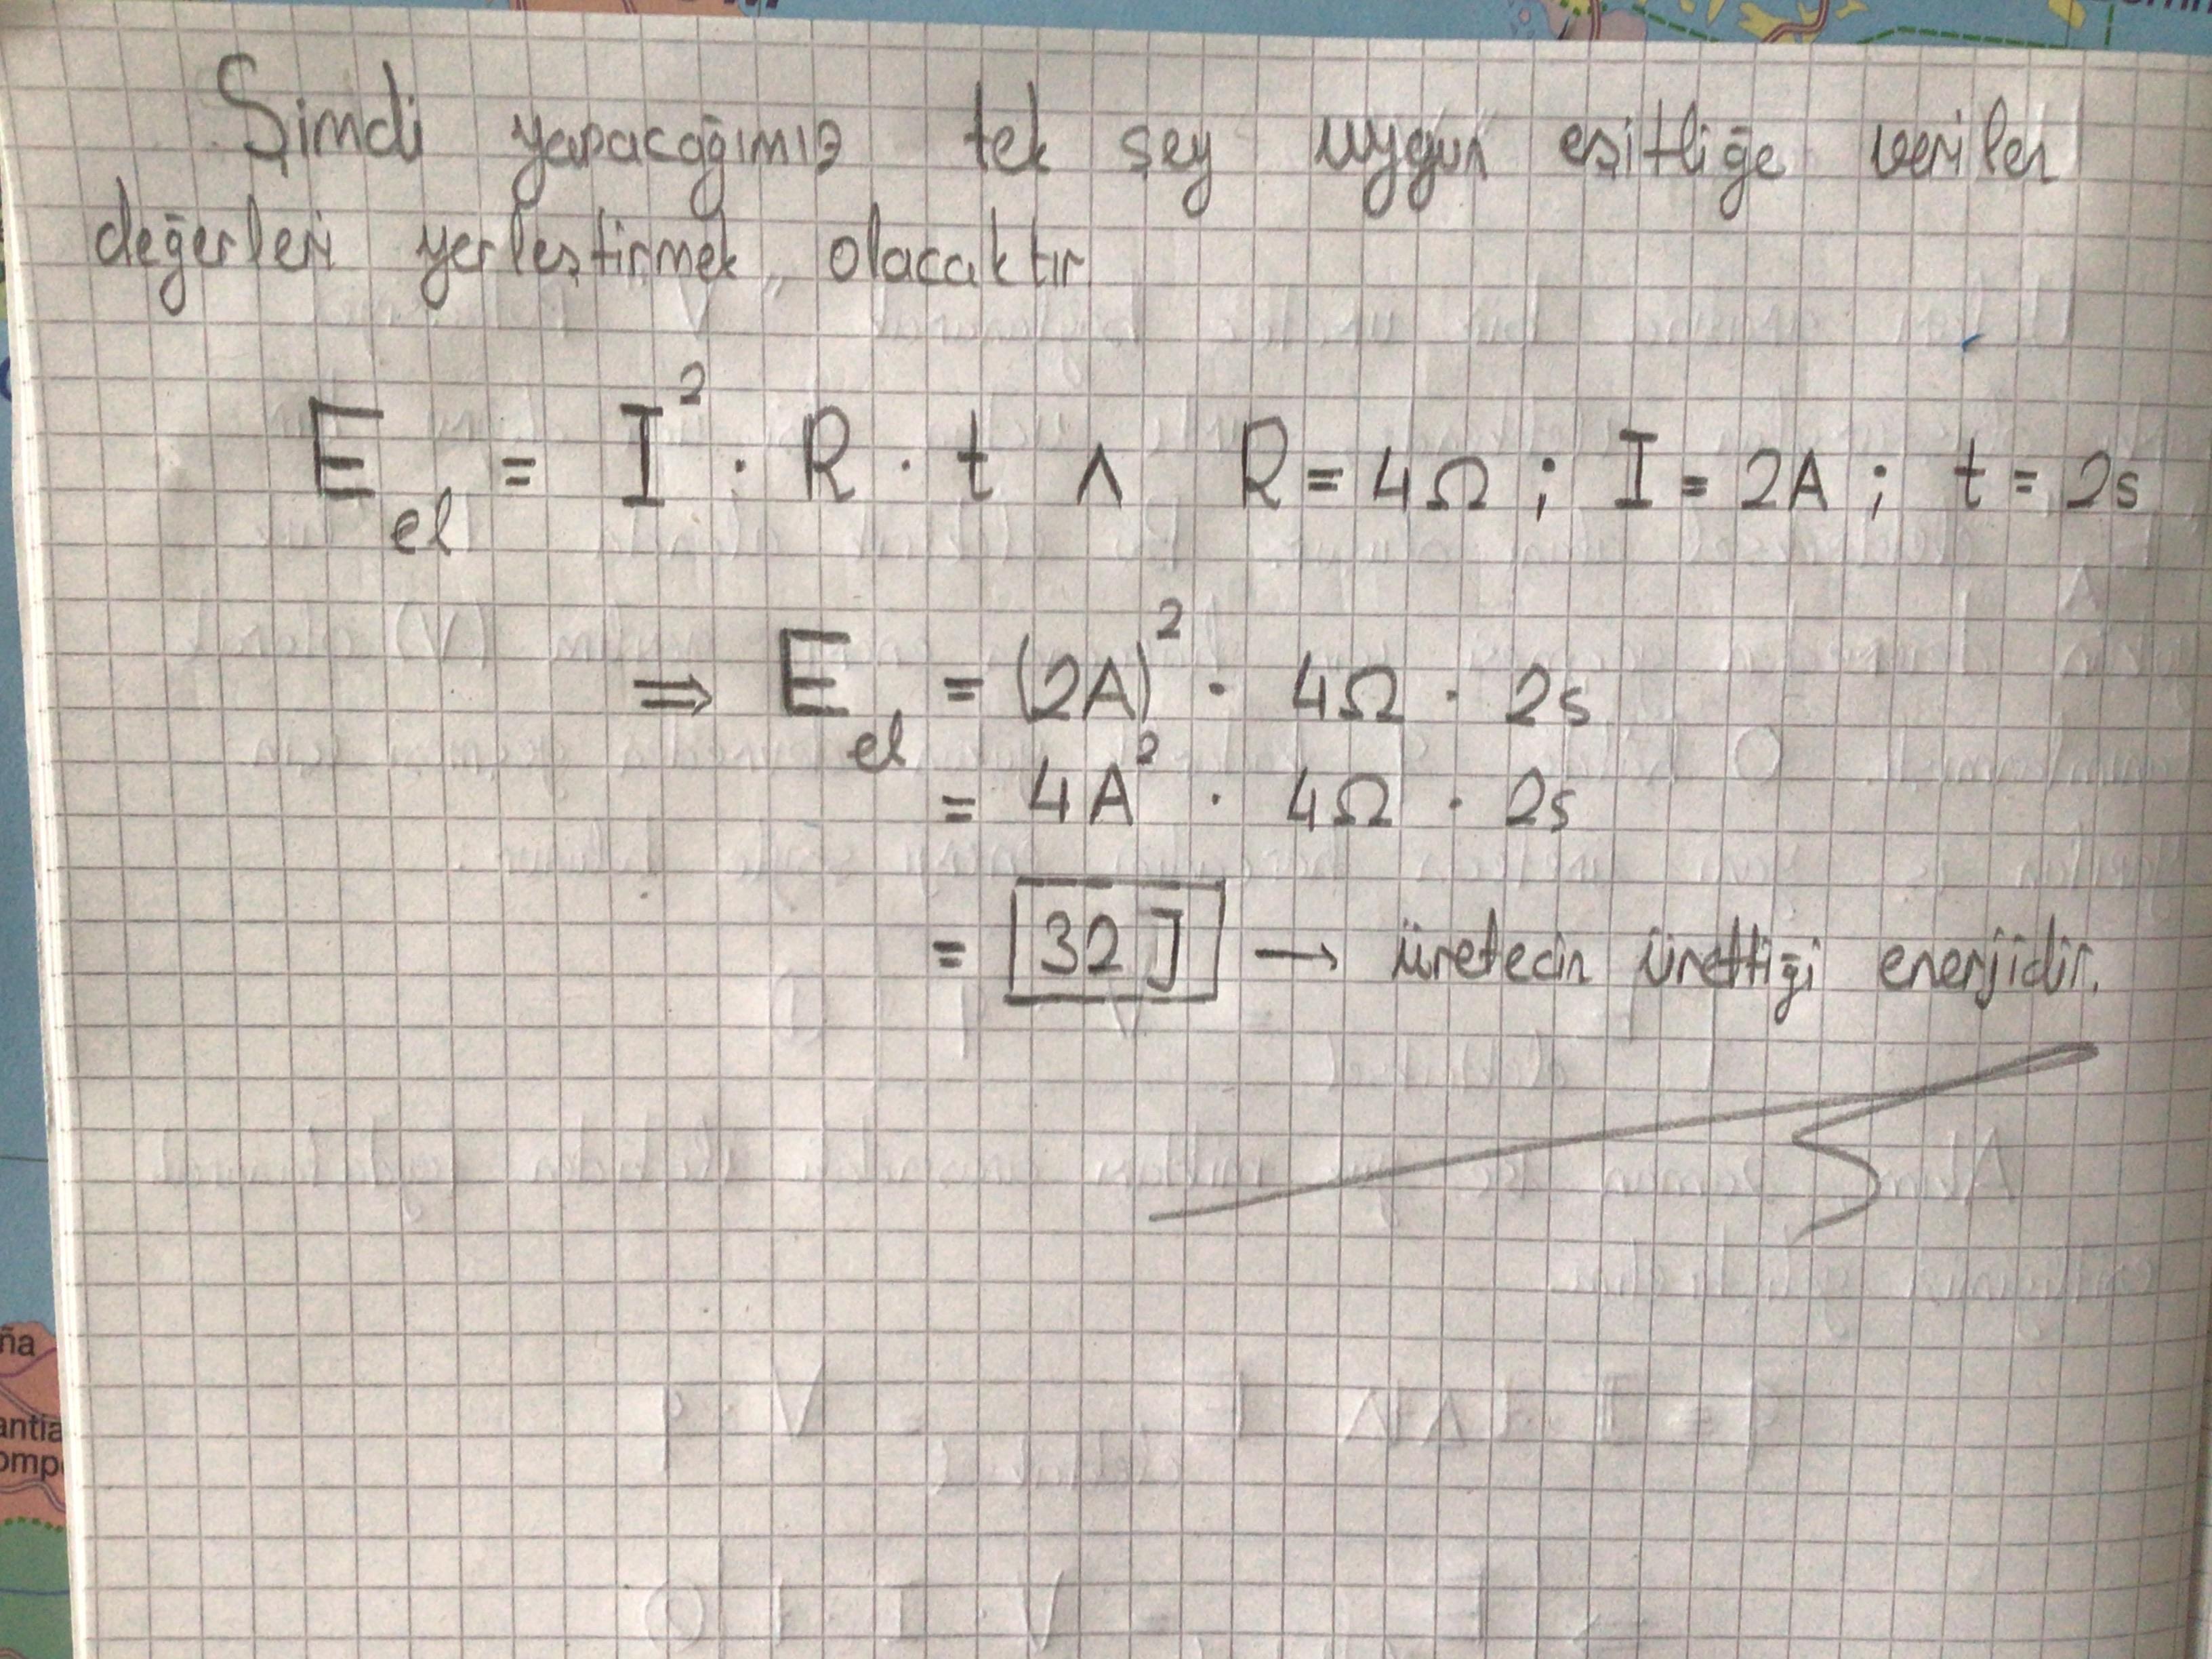 Şimdi yapacağımız tek şey uygun eşitliğe verilen
değerleri yerleştirmek olacaktır
E_el = I² · R · t ∧ R = 4Ω ; I = 2A ; t = 2s
⇒ E_el = (2A)² · 4Ω · 2s
= 4A² · 4Ω · 2s
= 32 J → üretecin ürettiği enerjidir.
ña
antia